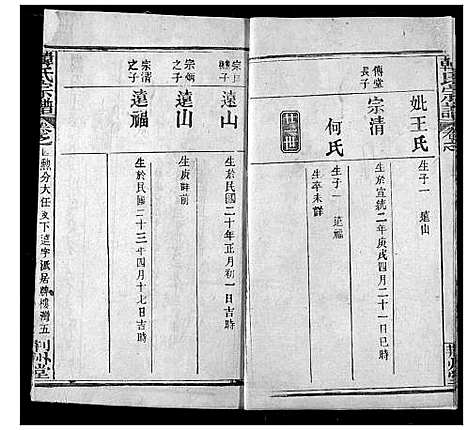 韓氏宗譜
妣王氏
生子一 遠山
傳堂長子
宗清
生於宣統二年庚戌四月二十一日巳時
何氏
生子一 遠福
生卒未詳
廿二世
宗
繼子
遠山
生於民國二十年正月初一日吉時
宗炳之子
遠山
生庚詳前
宗清之子
遠福
生於民國二十三年四月十七日吉時
韓氏宗譜
勲分大任支下遠字派居 樓灣五
荆州堂